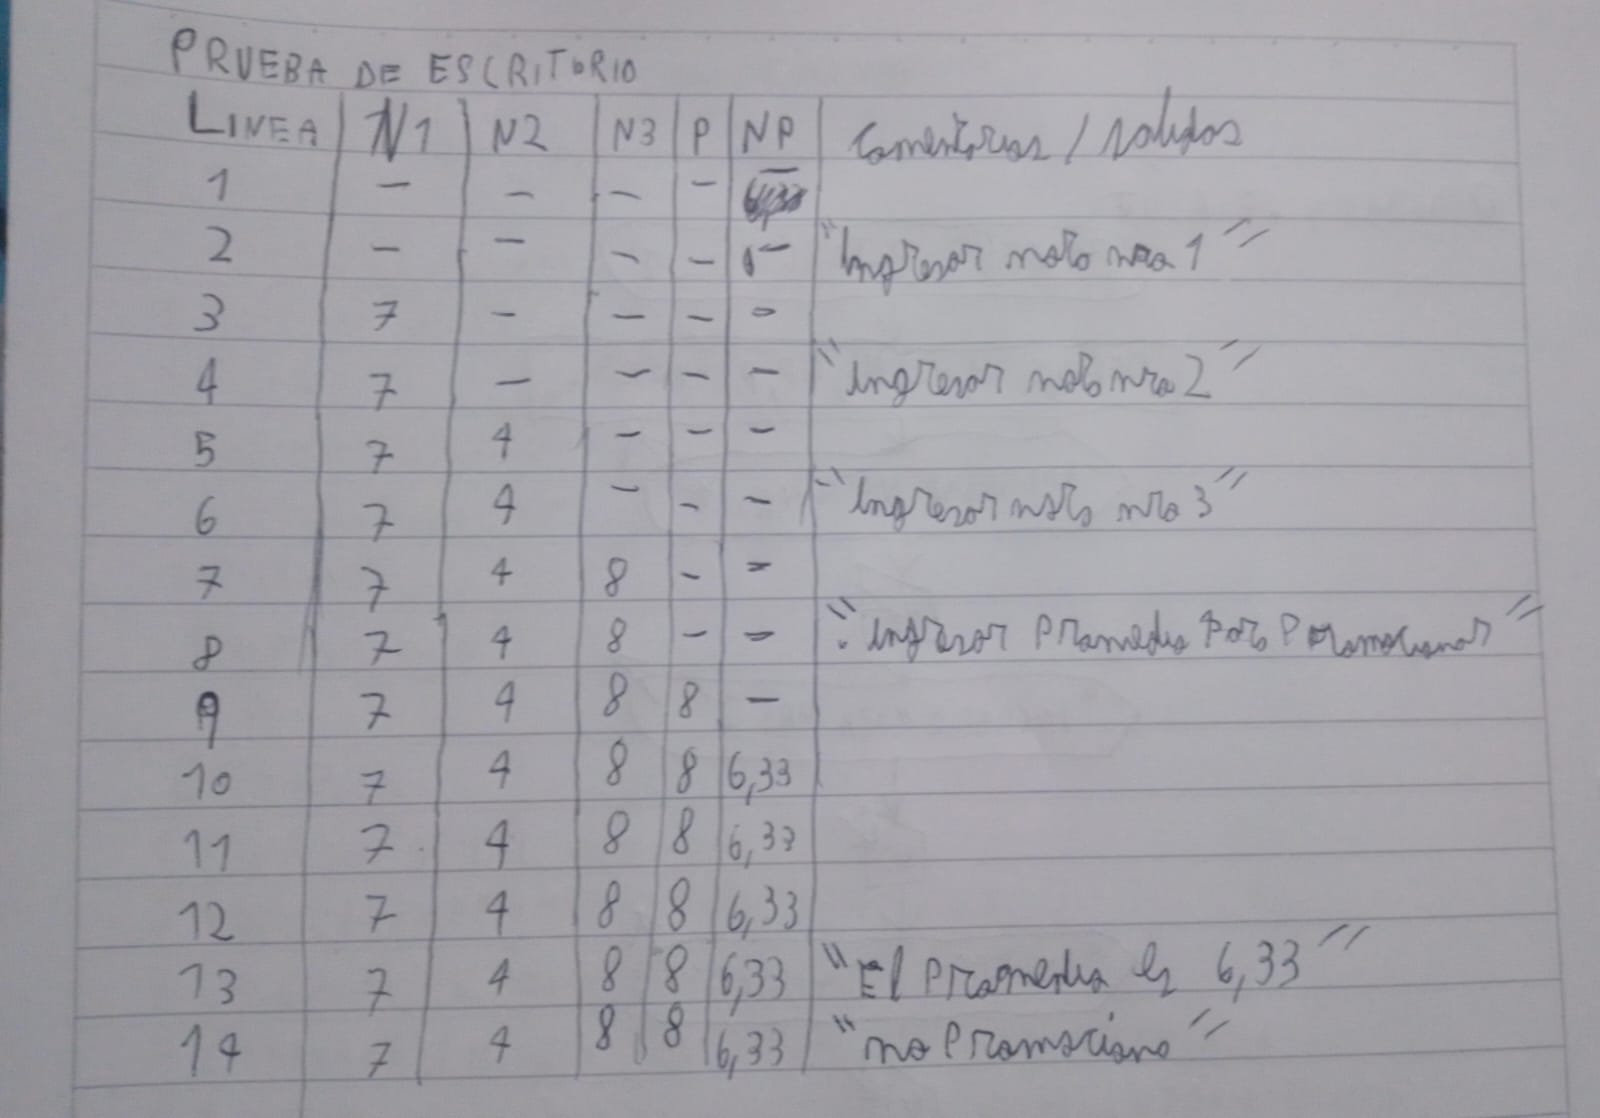 PRUEBA DE ESCRITORIO
LINEA N1 N2 N3 P NP Comentarios / salidas
1 - - - - -
2 - - - - - "Ingresar nota nro 1"
3 7 - - - -
4 7 - - - - "ingresar nota nro 2"
5 7 4 - - -
6 7 4 - - - "Ingresar nota nro 3"
7 7 4 8 - -
8 7 4 8 - - "ingresar Promedio Para Promocionar"
9 7 4 8 8 -
10 7 4 8 8 6,33
11 7 4 8 8 6,33
12 7 4 8 8 6,33
13 7 4 8 8 6,33 "El Promedio es 6,33"
14 7 4 8 8 6,33 "no Promociono"